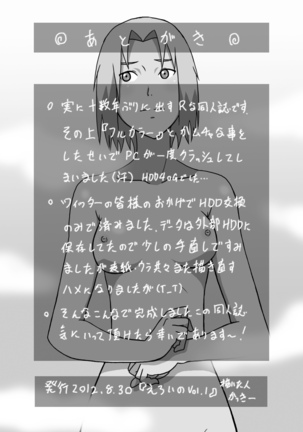 ◎ あとがき ◎
○ 実に十数年ぶりに出すRな同人誌です
その上『フルカラー』とかムチャな事を
したせいでPCが一度クラッシュしてし
まいました(汗) HDD40Gでした…
○ ツィッターの皆様のおかげでHDD交換
のみで済みました、データは外部HDDに
保存してたので少しの手直しですみ
ましたが表紙・ウラ共々また描き直す
ハメになりましたが(T_T)
○ そんなこんなで完成しましたこの同人誌
気にいって頂けたら幸いであります〜!
発行2012.8.30『えろいのVol.1』
描いた人
かっきー